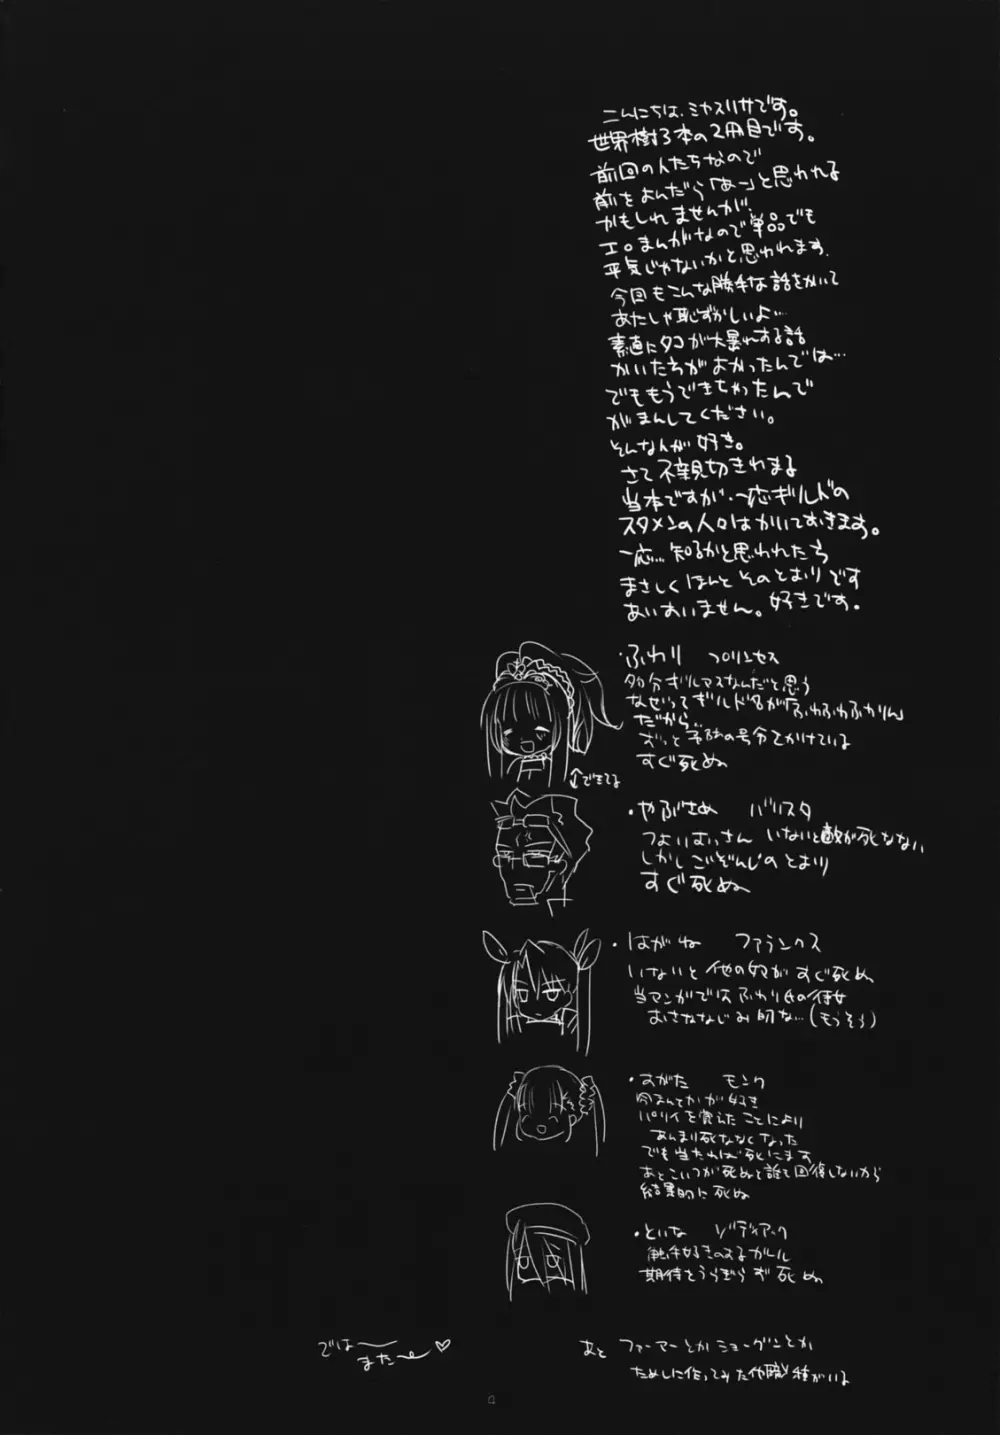 こんにちは、ミヤスリサです。
世界樹3本の2冊目です。
前回の人たちなので
前をよんだら「あー」と思われる
かもしれませんが、
エロまんがなので単品でも
平気じゃないかと思われます。
今回もこんな勝手な話をかいて
あたしゃ恥ずかしいよ…
素直にタコが大暴れする話
かいたちがよかったんでは…
でももうできちゃったんで
がまんしてください。
そんな人が好き。
さて不親切きわまる
当本ですが、一応ギルドの
スタメンの人々はかいておきます。
一応…知るかと思われたら
まさしくほんとそのとおりです
あいすいません。好きです。
・ふわり プリンセス
多分ギルマスなんだと思う
なぜってギルド名が「ふわふわふかりん」
だから…
ずっと予防の号令をかけている
すぐ死ぬ
↓できてる
・やぶさめ バリスタ
つよいむいさん いないと敵が死なない
しかしごぞんじのとおり
すぐ死ぬ
・はがね ファランクス
いないと他の奴がすぐ死ぬ
当マンガではふわり氏の彼女
おさななじみ的な…(もうそう)
・すがた モンク
パリイを覚えたことにより
あんまり死ななくなった
でも当たれば死にます
あとこいつが死ぬと誰も回復しないから
結果的に死ぬ
・といな ゾディアック
触手好きのメガール
期待をうらぎらず死ぬ
では〜
また〜♡
あと ファーマーとかショーグンとか
ためしに作ってみた他職種がいる